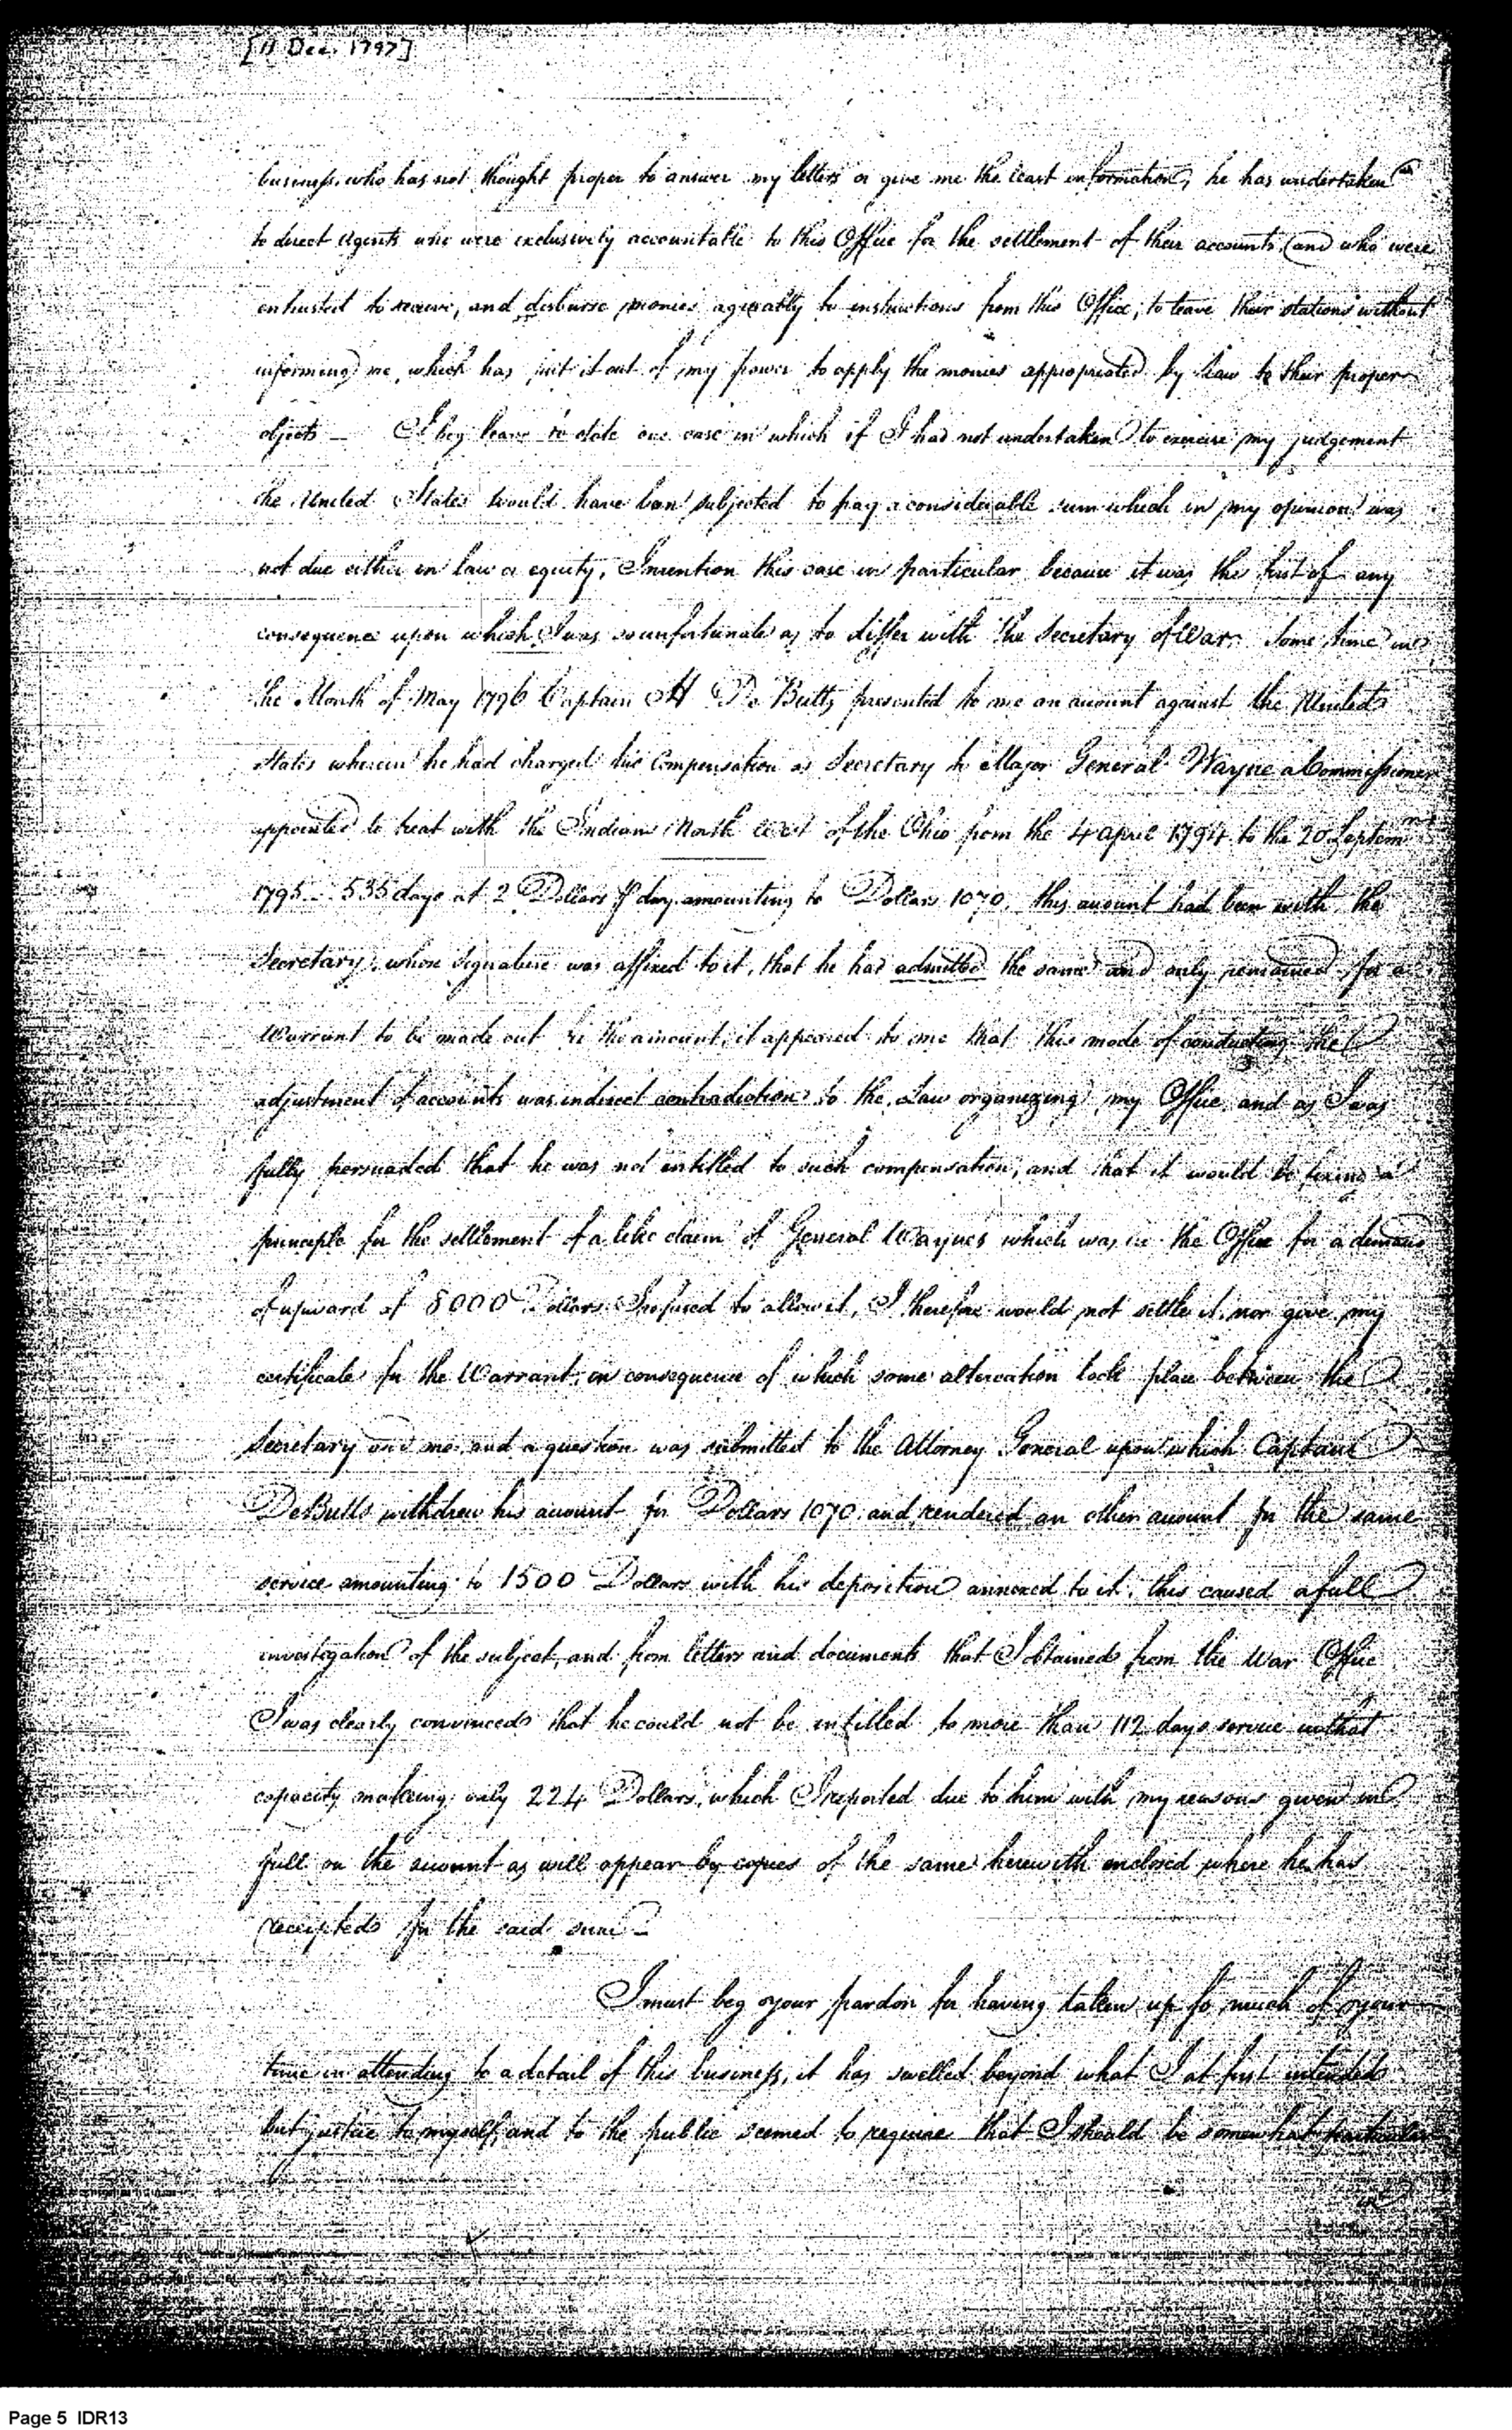 [11 Dec. 1797]
business, who has not thought proper to answer my letters or give me the least information, he has undertaken
to direct Agents who were exclusively accountable to this Office for the settlement of their accounts (and who were
entrusted to receive, and disburse monies agreeably to instructions from this Office, to leave their stations without
informing me, which has put it out of my power to apply the monies appropriated by Law to their proper
objects — I beg leave to state one case in which if I had not undertaken to exercise my judgement
the United States would have been subjected to pay a considerable sum which in my opinion was
not due either in law or equity, I mention this case in particular because it was the first of any
consequence upon which I was so unfortunate as to differ with the Secretary of War. Some time in
the Month of May 1796 Captain H De Butts presented to me an account against the United
States wherein he had charged his Compensation as Secretary to Major General Wayne a Commissioner
appointed to treat with the Indians North West of the Ohio from the 4 April 1794 to the 20 Septem
1795 - 535 days at 2 Dollars ⅌ day amounting to Dollars 1070, this account had been with the
Secretary, whose signature was affixed to it, that he had admitted the same and only remained for a
Warrant to be made out for the amount, it appeared to me that this mode of conducting the
adjustment of accounts was in direct contradiction to the Law organizing my Office, and as I was
fully persuaded that he was not entitled to such compensation, and that it would be fixing a
principle for the settlement of a like claim of General Waynes which was in the Office for a demand
of upward of 8000 Dollars I refused to allow it, I therefore would not settle it, nor give my
certificate for the Warrant, in consequence of which some altercation took place between the
Secretary and me, and a question was submitted to the Attorney General upon which Captain
DeButts withdrew his account for Dollars 1070 and rendered an other account for the same
service amounting to 1500 Dollars with his deposition annexed to it, this caused a full
investigation of the subject, and from letters and documents that I obtained from the War Office
I was clearly convinced that he could not be intitled to more than 112 days service in that
capacity making only 224 Dollars, which I reported due to him with my reasons given in
full on the account as will appear by copies of the same herewith enclosed where he has
receipted for the said sum —
I must beg your pardon for having taken up so much of your
time in attending to a detail of this business, it has swelled beyond what I at first intended
but justice to myself, and to the public seemed to require that I should be somewhat particular
in
Page 5 IDR13